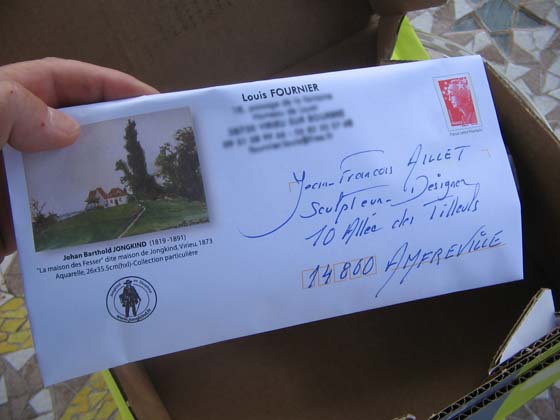 Louis FOURNIER
Jean-François AILLET
Sculpteur - Designer
10 Allée des Tilleuls
14860 AMFREVILLE
Johan Barthold JONGKIND (1819-1891)
"La maison des Fesser" dite maison de Jongkind, Virieu, 1873
Aquarelle, 26x35.5cm(hxl)-Collection particulière